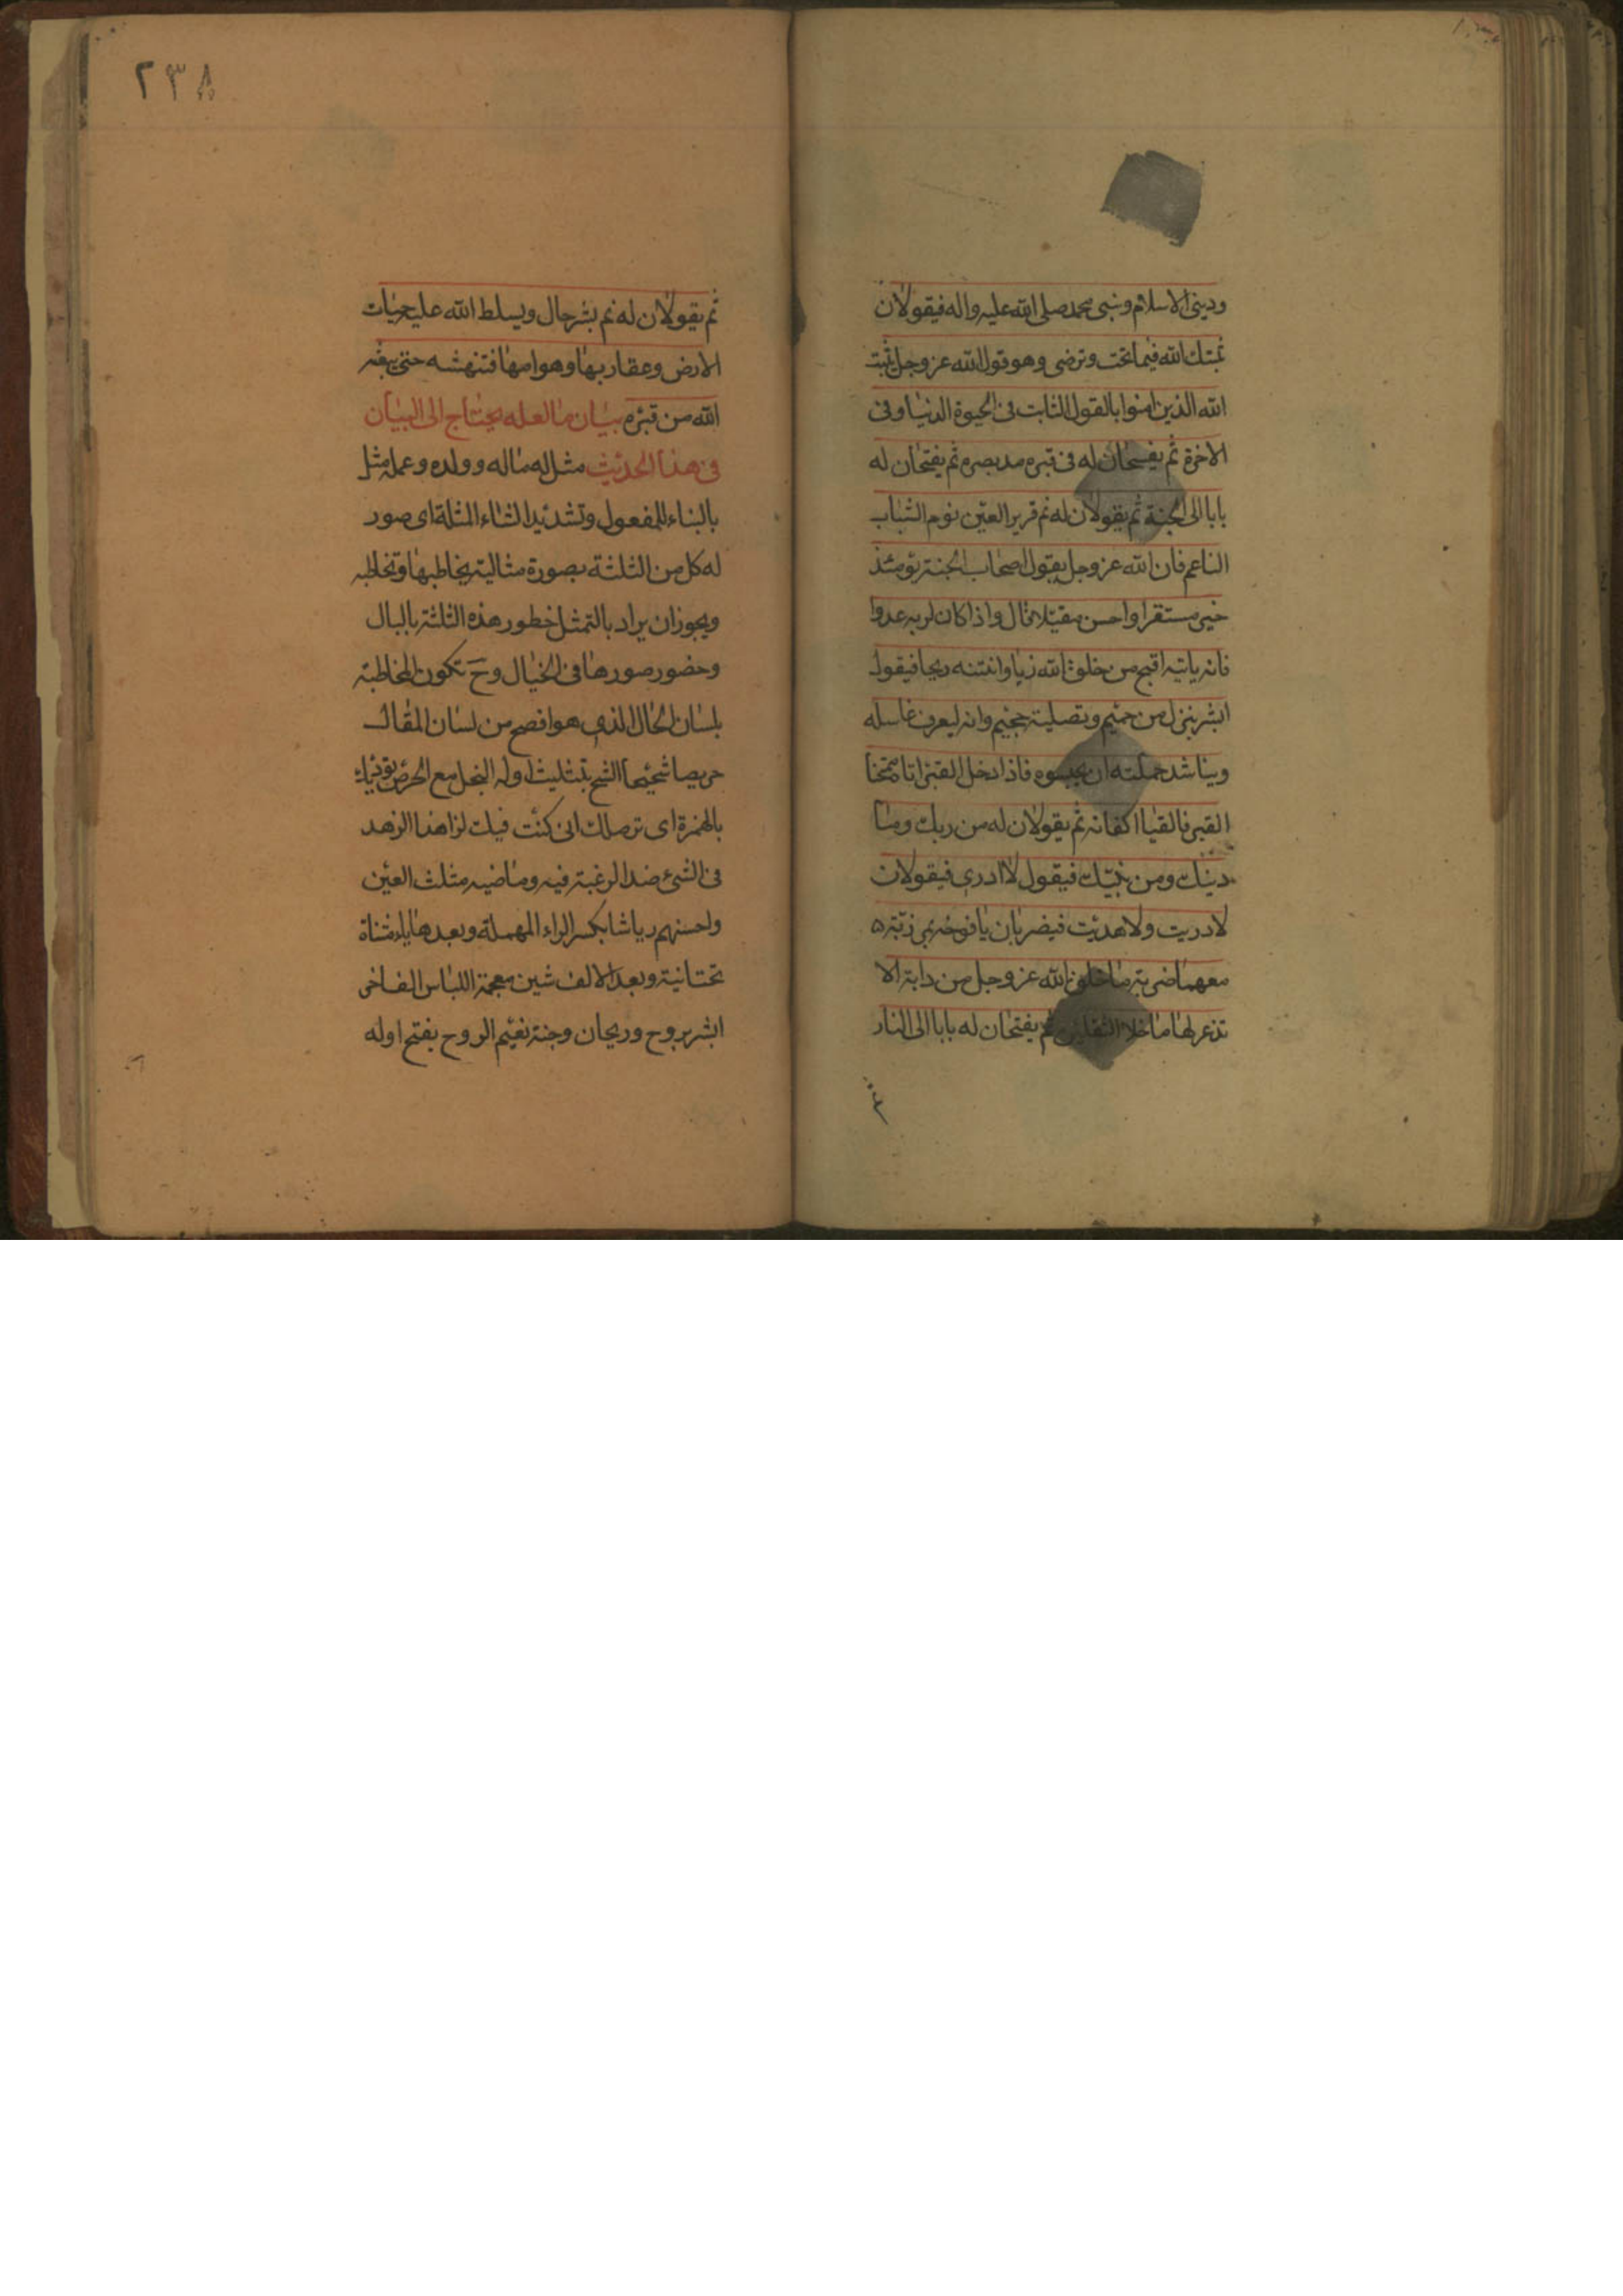 وديني الاسلام ونبيي محمد صلى الله عليه واله فيقولان
ثبتك الله فيما تحب وترضى وهو قول الله عز وجل يثبت
الله الذين امنوا بالقول الثابت في الحيوة الدنيا وفي
الاخرة ثم يفسحان له في قبره مد بصره ثم يفتحان له
بابا الى الجنة ثم يقولان له نم قرير العين نوم الشباب
الناعم فان الله عز وجل يقول اصحاب الجنة يومئذ
خير مستقرا واحسن مقيلا قال واذا كان لربه عدوا
فانه ياتيه اقبح من خلق الله زيا وانتنه ريحا فيقول
ابشر بنزل من حميم وتصلية جحيم وانه ليعرف غاسله
ويناشد حملته ان يحبسوه فاذا ادخل القبر اتاه ممتحنا
القبر فالقيا اكفانه ثم يقولان له من ربك وما
دينك ومن نبيك فيقول لا ادري فيقولان
لا دريت ولا هديت فيضربان يافوخه بمرزبة
معهما ضربة ما خلق الله عز وجل من دابة الا
تذعر لها ما خلا الثقلين ثم يفتحان له بابا الى النار
٢٣٨
ثم يقولان له نم بشر حال ويسلط الله عليه حيات
الارض وعقاربها وهوامها فتنهشه حتى يبعثه
الله من قبره بيان ما لعله يحتاج الى البيان
في هذا الحديث مثل له ماله وولده وعمله مثل
بالبناء للمفعول وتشديد الثاء المثلثة اي صور
له كل من الثلثة بصورة مثالية يخاطبها وتخاطبه
ويجوز ان يراد بالتمثل خطور هذه الثلثة بالبال
وحضور صورها في الخيال وح تكون المخاطبة
بلسان الحال الذي هو افصح من لسان المقال
حريصا شحيحا الشح بتثليث اوله البخل مع الحرص تؤديك
بالهمزة اي توصلك اني كنت فيك لزاهدا الزهد
في الشئ ضد الرغبة فيه وماضيه مثلث العين
واحسنهم رياشا بكسر الراء المهملة وبعدها ياء مثناة
تحتانية وبعد الالف شين معجمة اللباس الفاخر
ابشر بروح وريحان وجنة نعيم الروح بفتح اوله